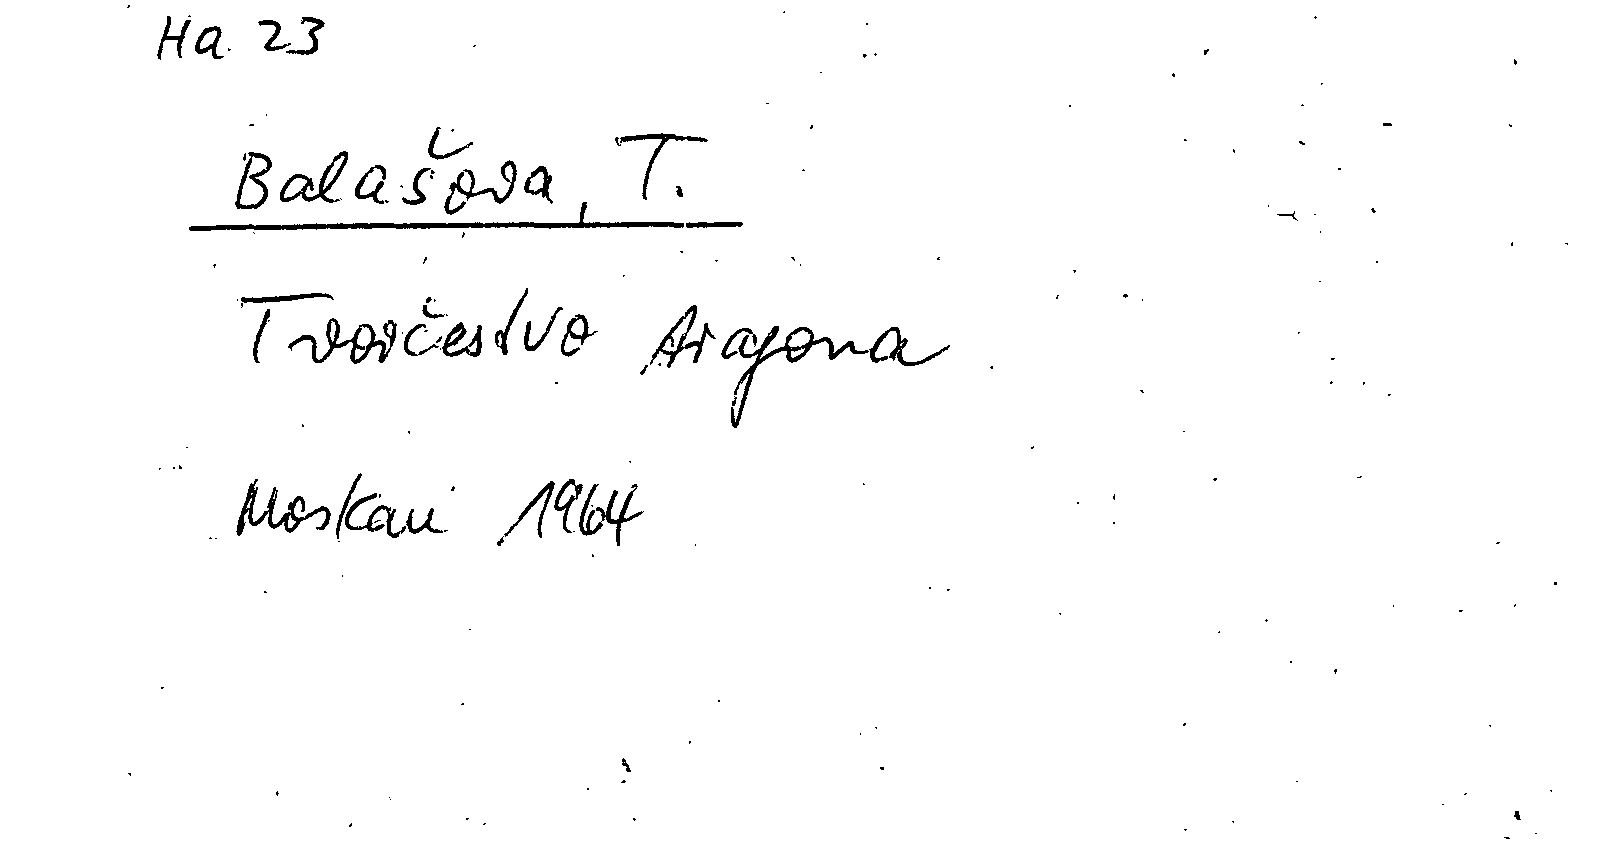 Ha 23
Balašova, T.
Tvorčestvo Aragona
Moskau 1964